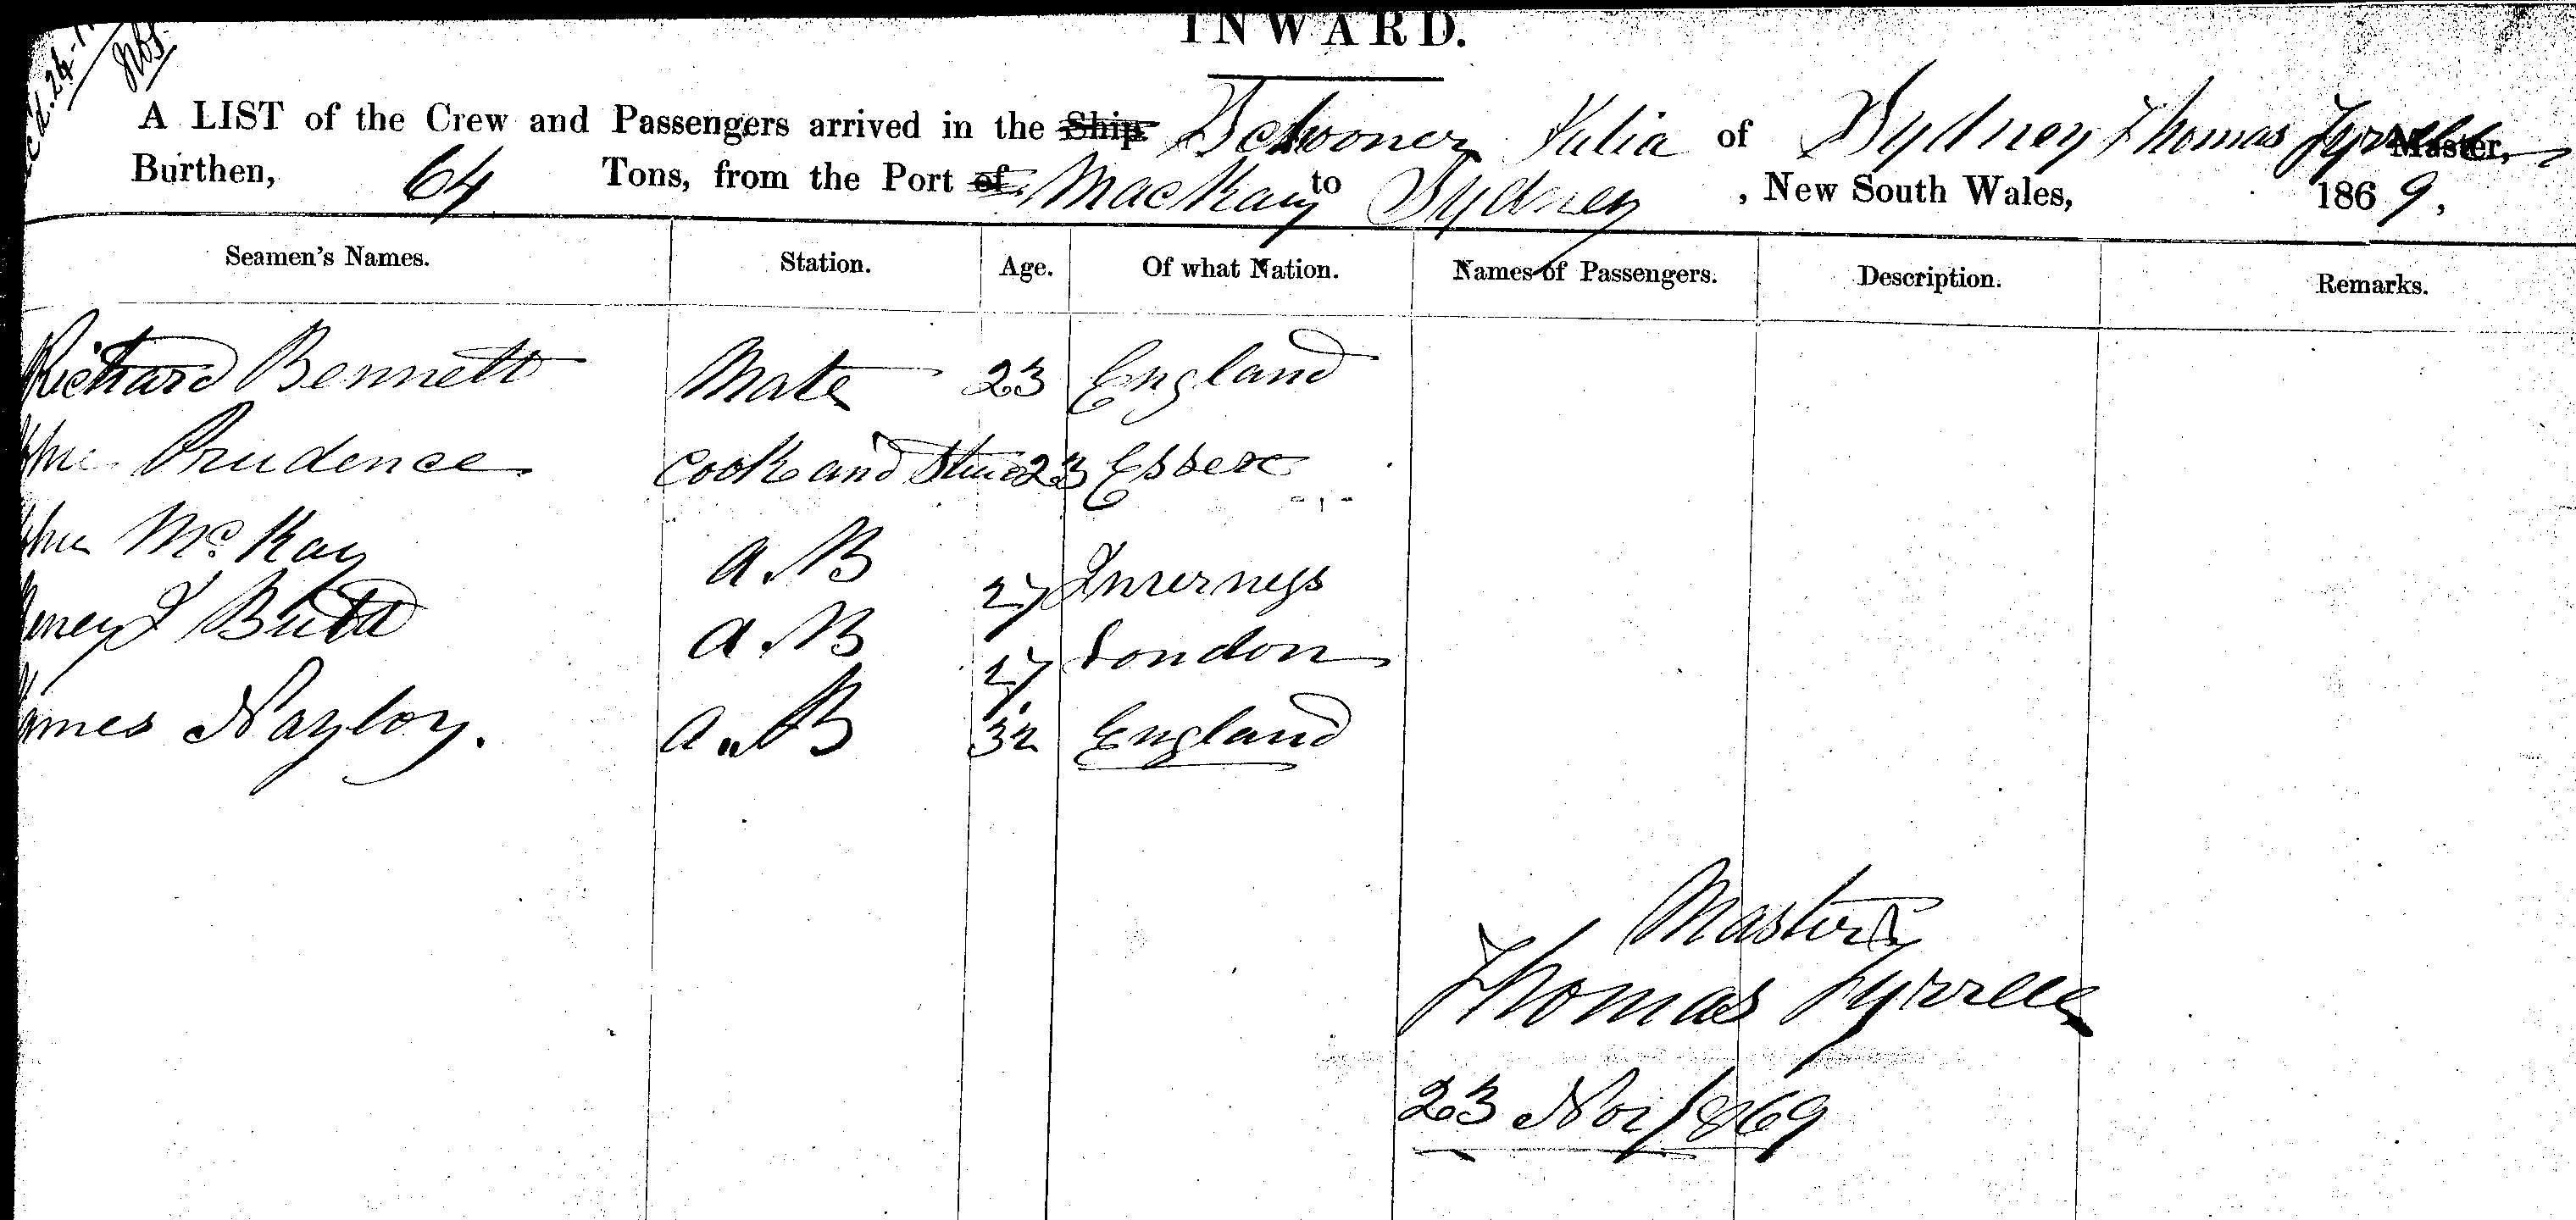 INWARD.
A LIST of the Crew and Passengers arrived in the Ship Schooner Julia of Sydney Thomas Tyrrell Master,
Burthen, 64 Tons, from the Port of MacKay to Sydney, New South Wales, 1869,
Seamen's Names. Station. Age. Of what Nation. Names of Passengers. Description. Remarks.
Richard Bennett Mate 23 England
Prudence Cook and 23 Essex
McKay A.B 27 Inverness
A.B 27 London
James Naylor. A.B 32 England
Master
Thomas Tyrrell
23 Nov/1869